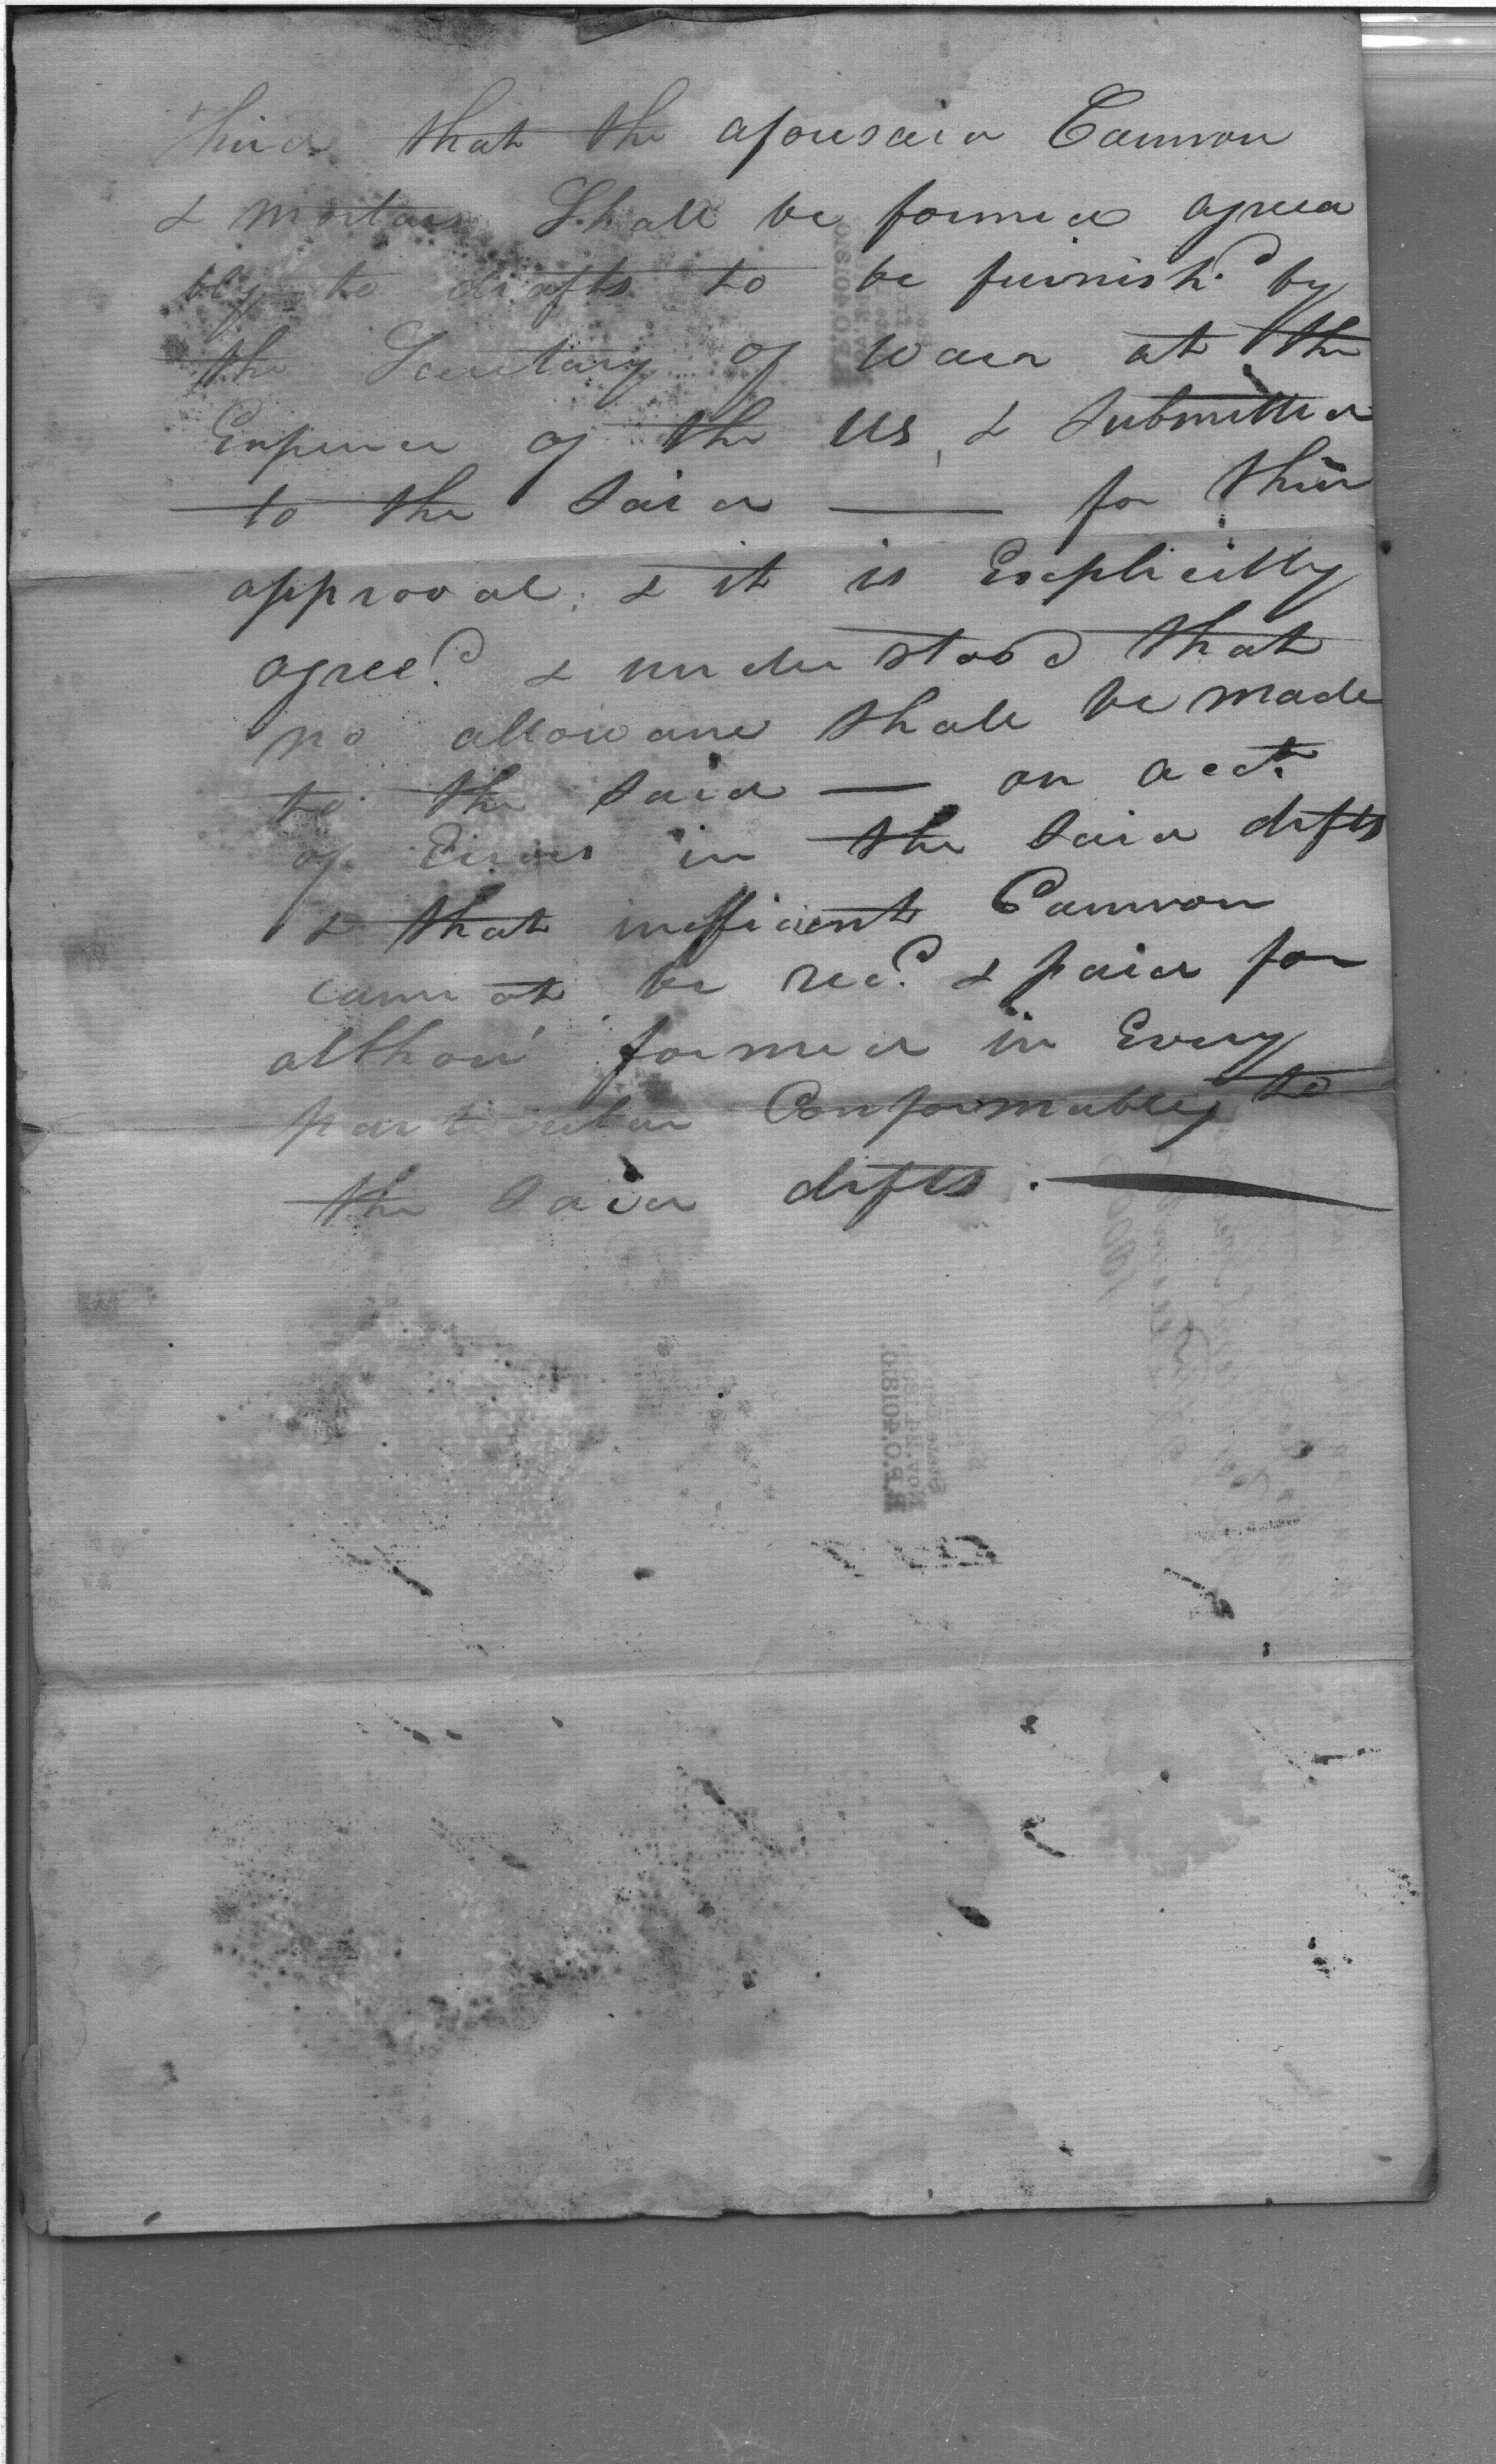 Third that the aforesaid Cannon
& mortars Shall be formed agreea
bly to drafts to be furnish.d by
the Secretary of War at the
Expence of the US, & Submitted
to the Said —— for their
approval; & it is Explicitly
agree.d & understood that
no allowance shall be made
to the Said — on acct.
of Errors in the Said drfts
& that inefficient Cannon
cannot be rec.d & paid for
althou' formed in Every
particular Conformably to
the Said drfts.
R.P.O.401810.